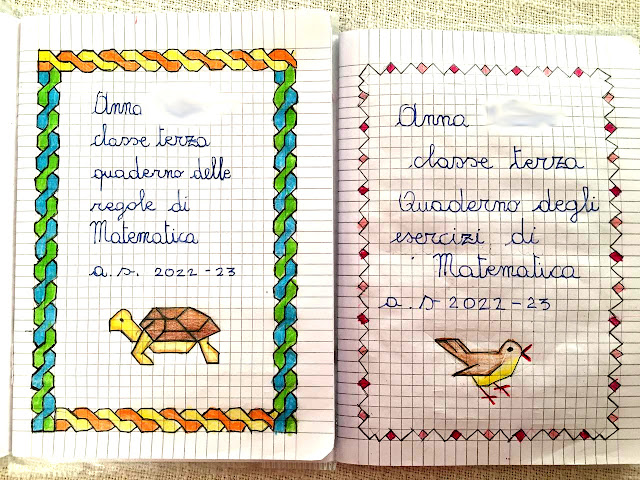 Anna
classe terza
quaderno delle
regole di
Matematica
a.s. 2022-23
Anna
classe terza
Quaderno degli
esercizi di
Matematica
a.s 2022-23